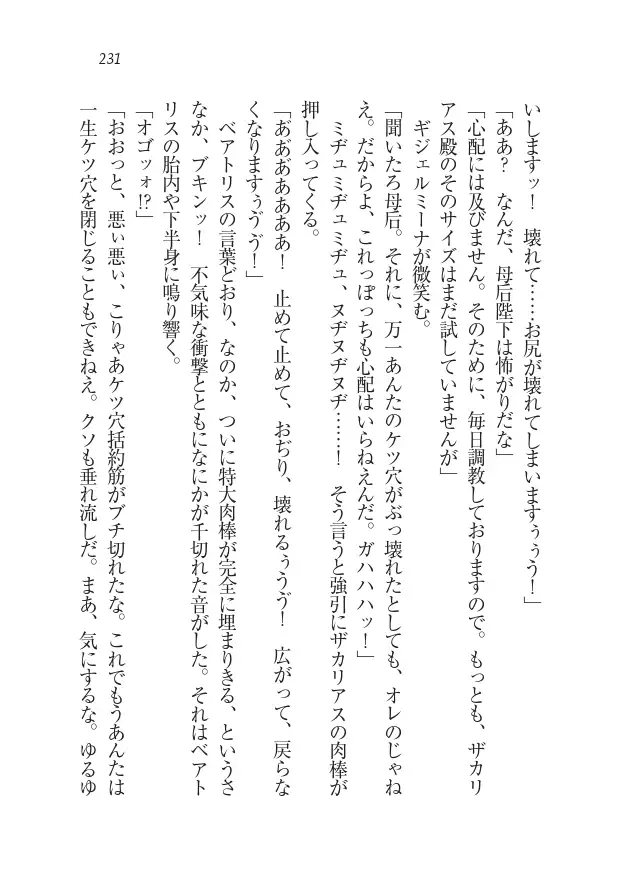 231
いしますッ！　壊れて……お尻が壊れてしまいますぅぅう！」
「ああ？　なんだ、母后陛下は怖がりだな」
「心配には及びません。そのために、毎日調教しておりますので。もっとも、ザカリ
アス殿のそのサイズはまだ試していませんが」
　ギジェルミーナが微笑む。
「聞いたろ母后。それに、万一あんたのケツ穴がぶっ壊れたとしても、オレのじゃね
え。だからよ、これっぽっちも心配はいらねえんだ。ガハハハッ！」
　ミヂュミヂュミヂュ、ヌヂヌヂヌヂ……！　そう言うと強引にザカリアスの肉棒が
押し入ってくる。
「あ゛あ゛あ゛あぁぁぁ！　止めて止めて、おぢり、壊れるぅうゔ！　広がって、戻らな
くなりますぅゔゔ！」
　ベアトリスの言葉どおり、なのか、ついに特大肉棒が完全に埋まりきる、というさ
なか、ブキンッ！　不気味な衝撃とともになにかが千切れた音がした。それはベアト
リスの胎内や下半身に鳴り響く。
「オゴッォ!?」
「おおっと、悪ぃ悪ぃ、こりゃあケツ穴括約筋がブチ切れたな。これでもうあんたは
一生ケツ穴を閉じることもできねえ。クソも垂れ流しだ。まあ、気にするな。ゆるゆ